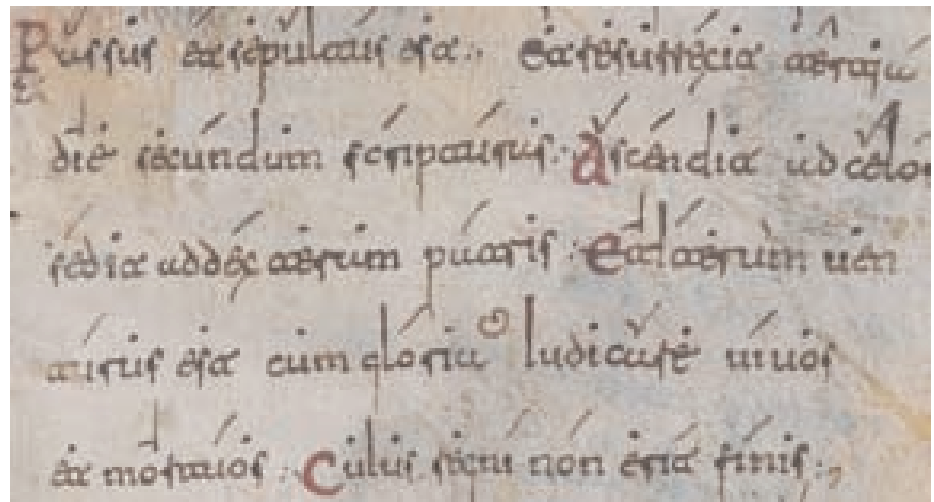 Passus et sepultus est. Et resurrexit tertia
die secundum scripturas. Ascendit ad celos
sedit ad dexteram patris. Et iterum uen
turus est cum gloria Iudicare uiuos
et mortuos. Cuius regni non erit finis.